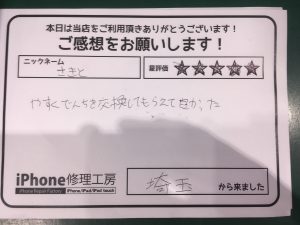 本日は当店をご利用頂きありがとうございます!
ご感想をお願いします!
ニックネーム
さきと
星評価
★★★★★
やすくでんちを交換してもらえて良かった
iPhone修理工房
iPhone Repair Factory iPhone/iPad/iPod touch
埼玉 から来ました